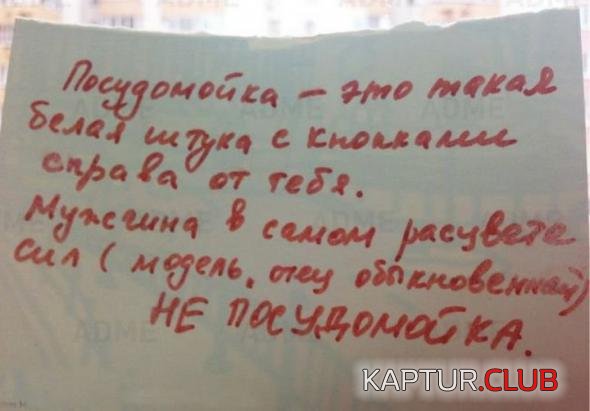 Посудомойка – это такая
белая штука с кнопками
справа от тебя.
Мужчина в самом расцвете
сил (модель, отец обыкновенный)
НЕ ПОСУДОМОЙКА.
KAPTUR.CLUB